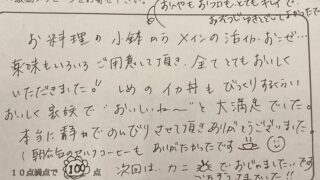 おんやも おフロも、とても キレイで、
お料理の 小鉢から メインの 活イカ、
薬味もいろいろ ご用意して頂き、全て とても おいしく
いただきました。しめの イカ丼も びっくりするくらい
おいしく 家族で "おいしいね〜" と 大満足でした。
本当に 静かで のんびり させて頂き ありがとうございました。
朝 のセルフコーヒーも ありがたかったです
10点満点で 100 点 次回は、カニ で おじゃましたいです